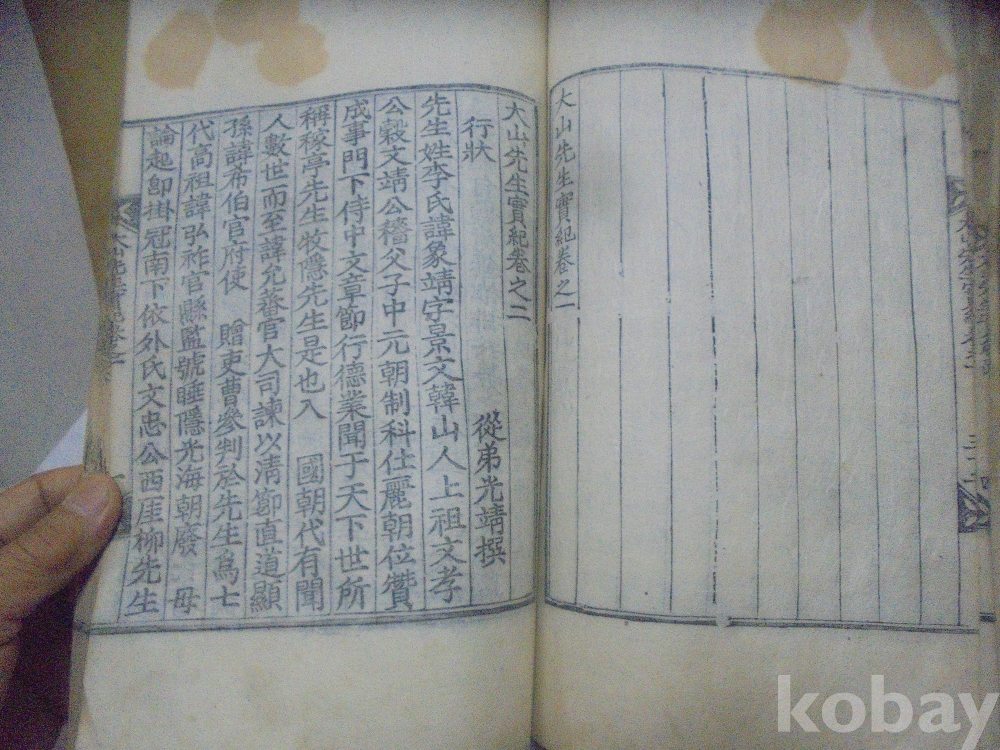 大山先生實紀卷之一
大山先生實紀卷之二
行狀
從弟光靖撰
先生姓李氏諱象靖字景文韓山人上祖文孝
公穀文靖公穡父子中元朝制科仕麗朝位贊
成事門下侍中文章節行德業聞于天下世所
稱稼亭先生牧隱先生是也入 國朝代有聞
人數世而至諱允蕃官大司諫以淸節直道顯
孫諱希伯官府使 贈吏曹參判於先生爲七
代高祖諱弘祚官縣監號睡隱光海朝廢 母
論起卽掛冠南下依外氏文忠公西厓柳先生
kobay